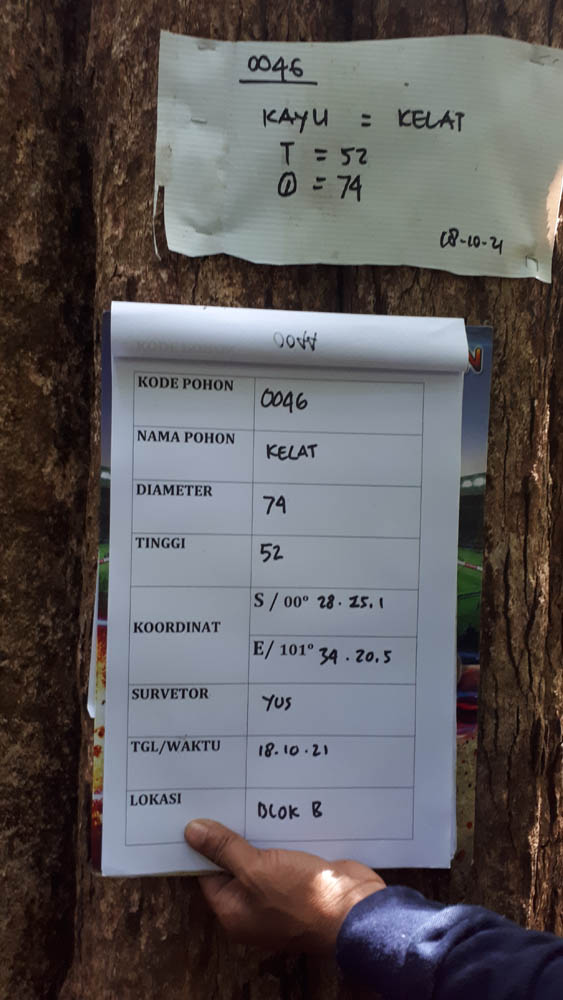 0046
KAYU = KELAT
T = 52
= 74
18-10-21
KODE POHON 0046
NAMA POHON KELAT
DIAMETER 74
TINGGI 52
KOORDINAT
S / 00° 28.25.1
E/ 101° 34.20.5
SURVETOR YUS
TGL/WAKTU 18.10.21
LOKASI BLOK B